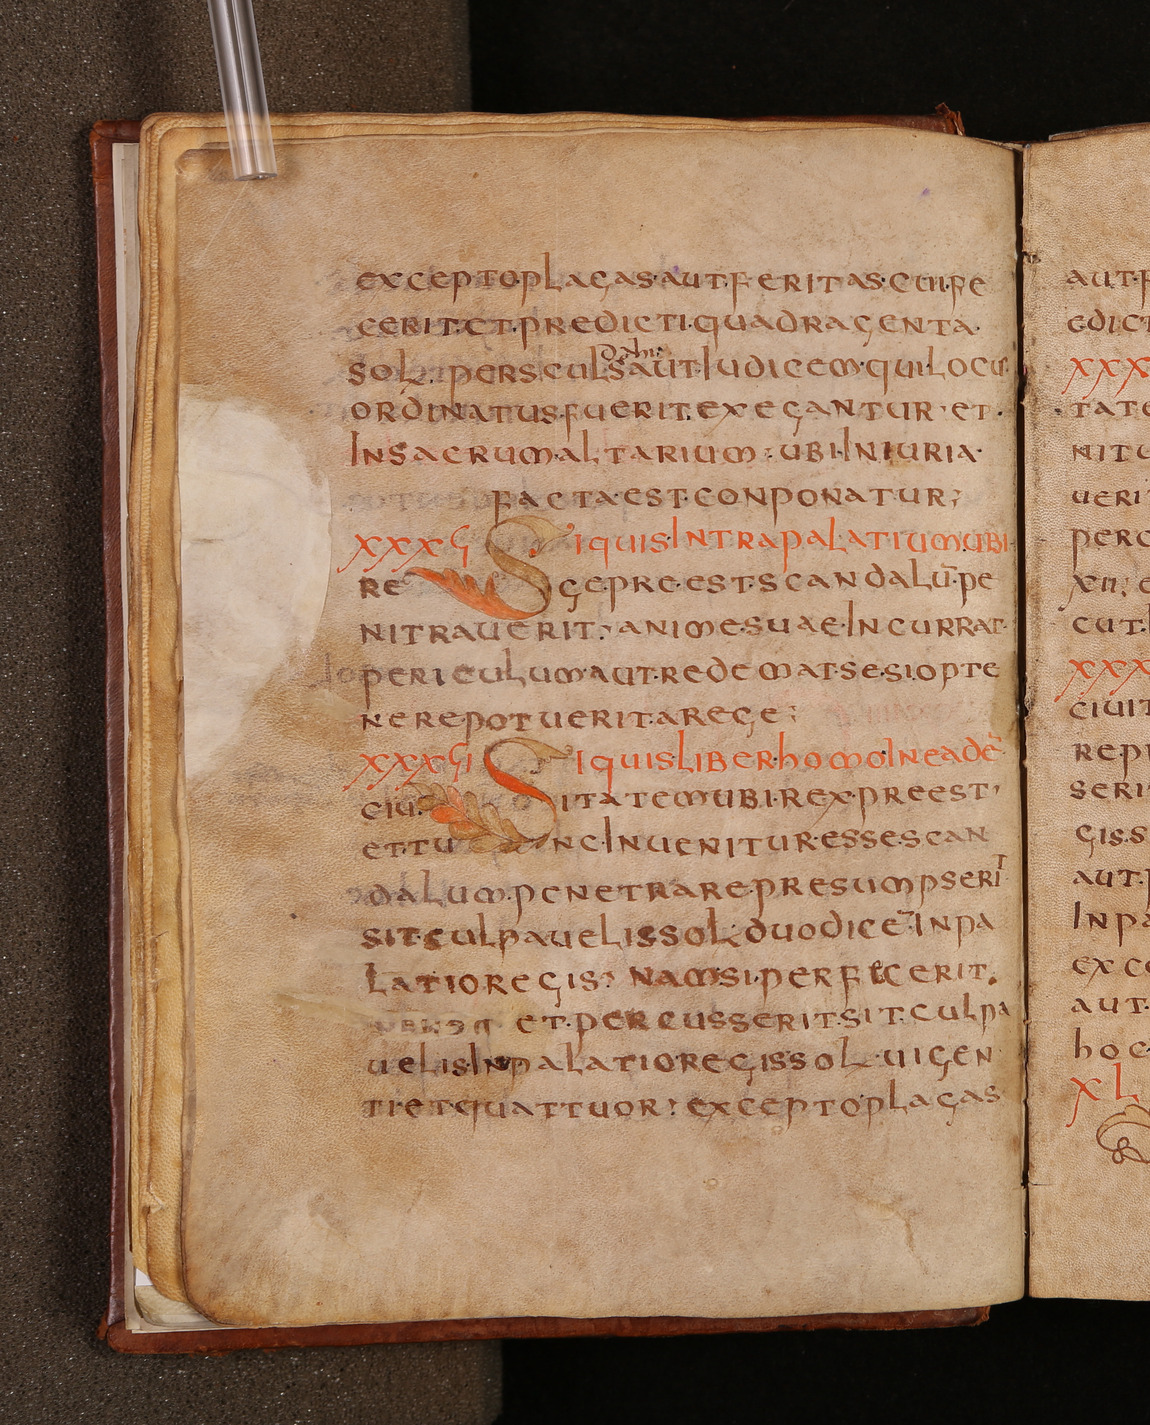 exceptoplagas·aut·feritas·cuife
cerit·et·predicti·quadragenta·
sol· persculdahis·aut·iudicem·qui·locu·
ordinatus·fuerit·exegantur·et·
insacrum·altarium·ubi·iniuria·
factaest·conponatur;
xxxvi Siquis·intrapalatium·ubi·
re gepre·est·scandalū·pe
nitrauerit·animesuae·incurrat·
periculum·aut·redemat·se·si·opte
nere potuerit·arege;
xxxvii Siquis·liber·homo·ineadē
ciui tatem·ubi·rex·preest·
et·tu nc·inuenitur·esse·scan
dalum·penetrare·presumpserit
sit·culpauelis·sol·duodicē·inpa
latioregis; namsi·perficerit·
et·percusserit·sit·culpa
uelis·inpalatio·regis·sol·uigen
tietquattuor; exceptoplagas
aut·f
edict
xxx
tate
nitu
ueri
perc
xii; e
cut·
xxx
ciuit
repr
seri
gis·s
aut·
inpa
exce
aut·
hoc
xl